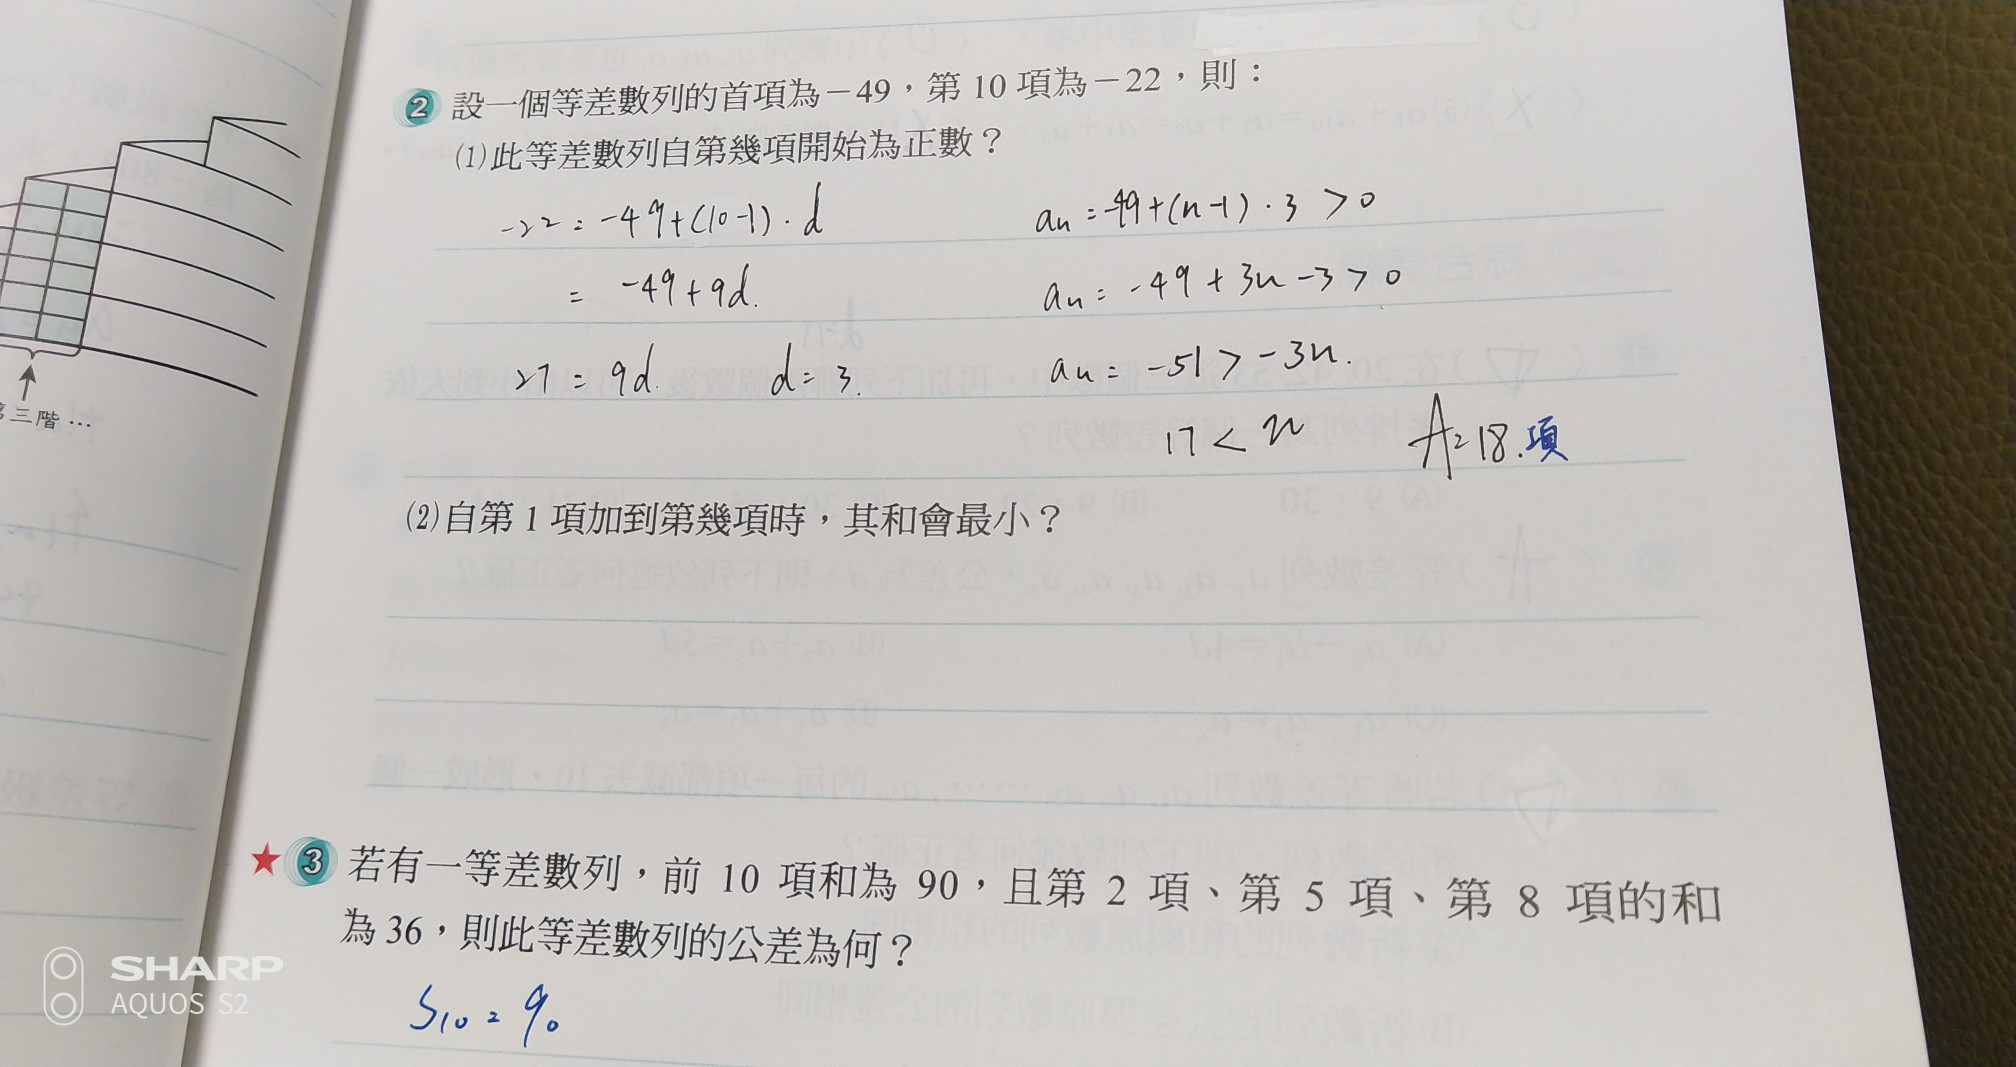 2 設一個等差數列的首項為−49，第 10 項為−22，則：
(1)此等差數列自第幾項開始為正數？
-22 = -49+(10-1)·d
= -49+9d.
27 = 9d. d=3.
an = -49+(n-1)·3 > 0
an = -49+3n-3 > 0
an = -51 > -3n.
17 < n A=18.項
(2)自第 1 項加到第幾項時，其和會最小？
★ 3 若有一等差數列，前 10 項和為 90，且第 2 項、第 5 項、第 8 項的和
為 36，則此等差數列的公差為何？
S10 = 90
三階 …
SHARP
AQUOS S2